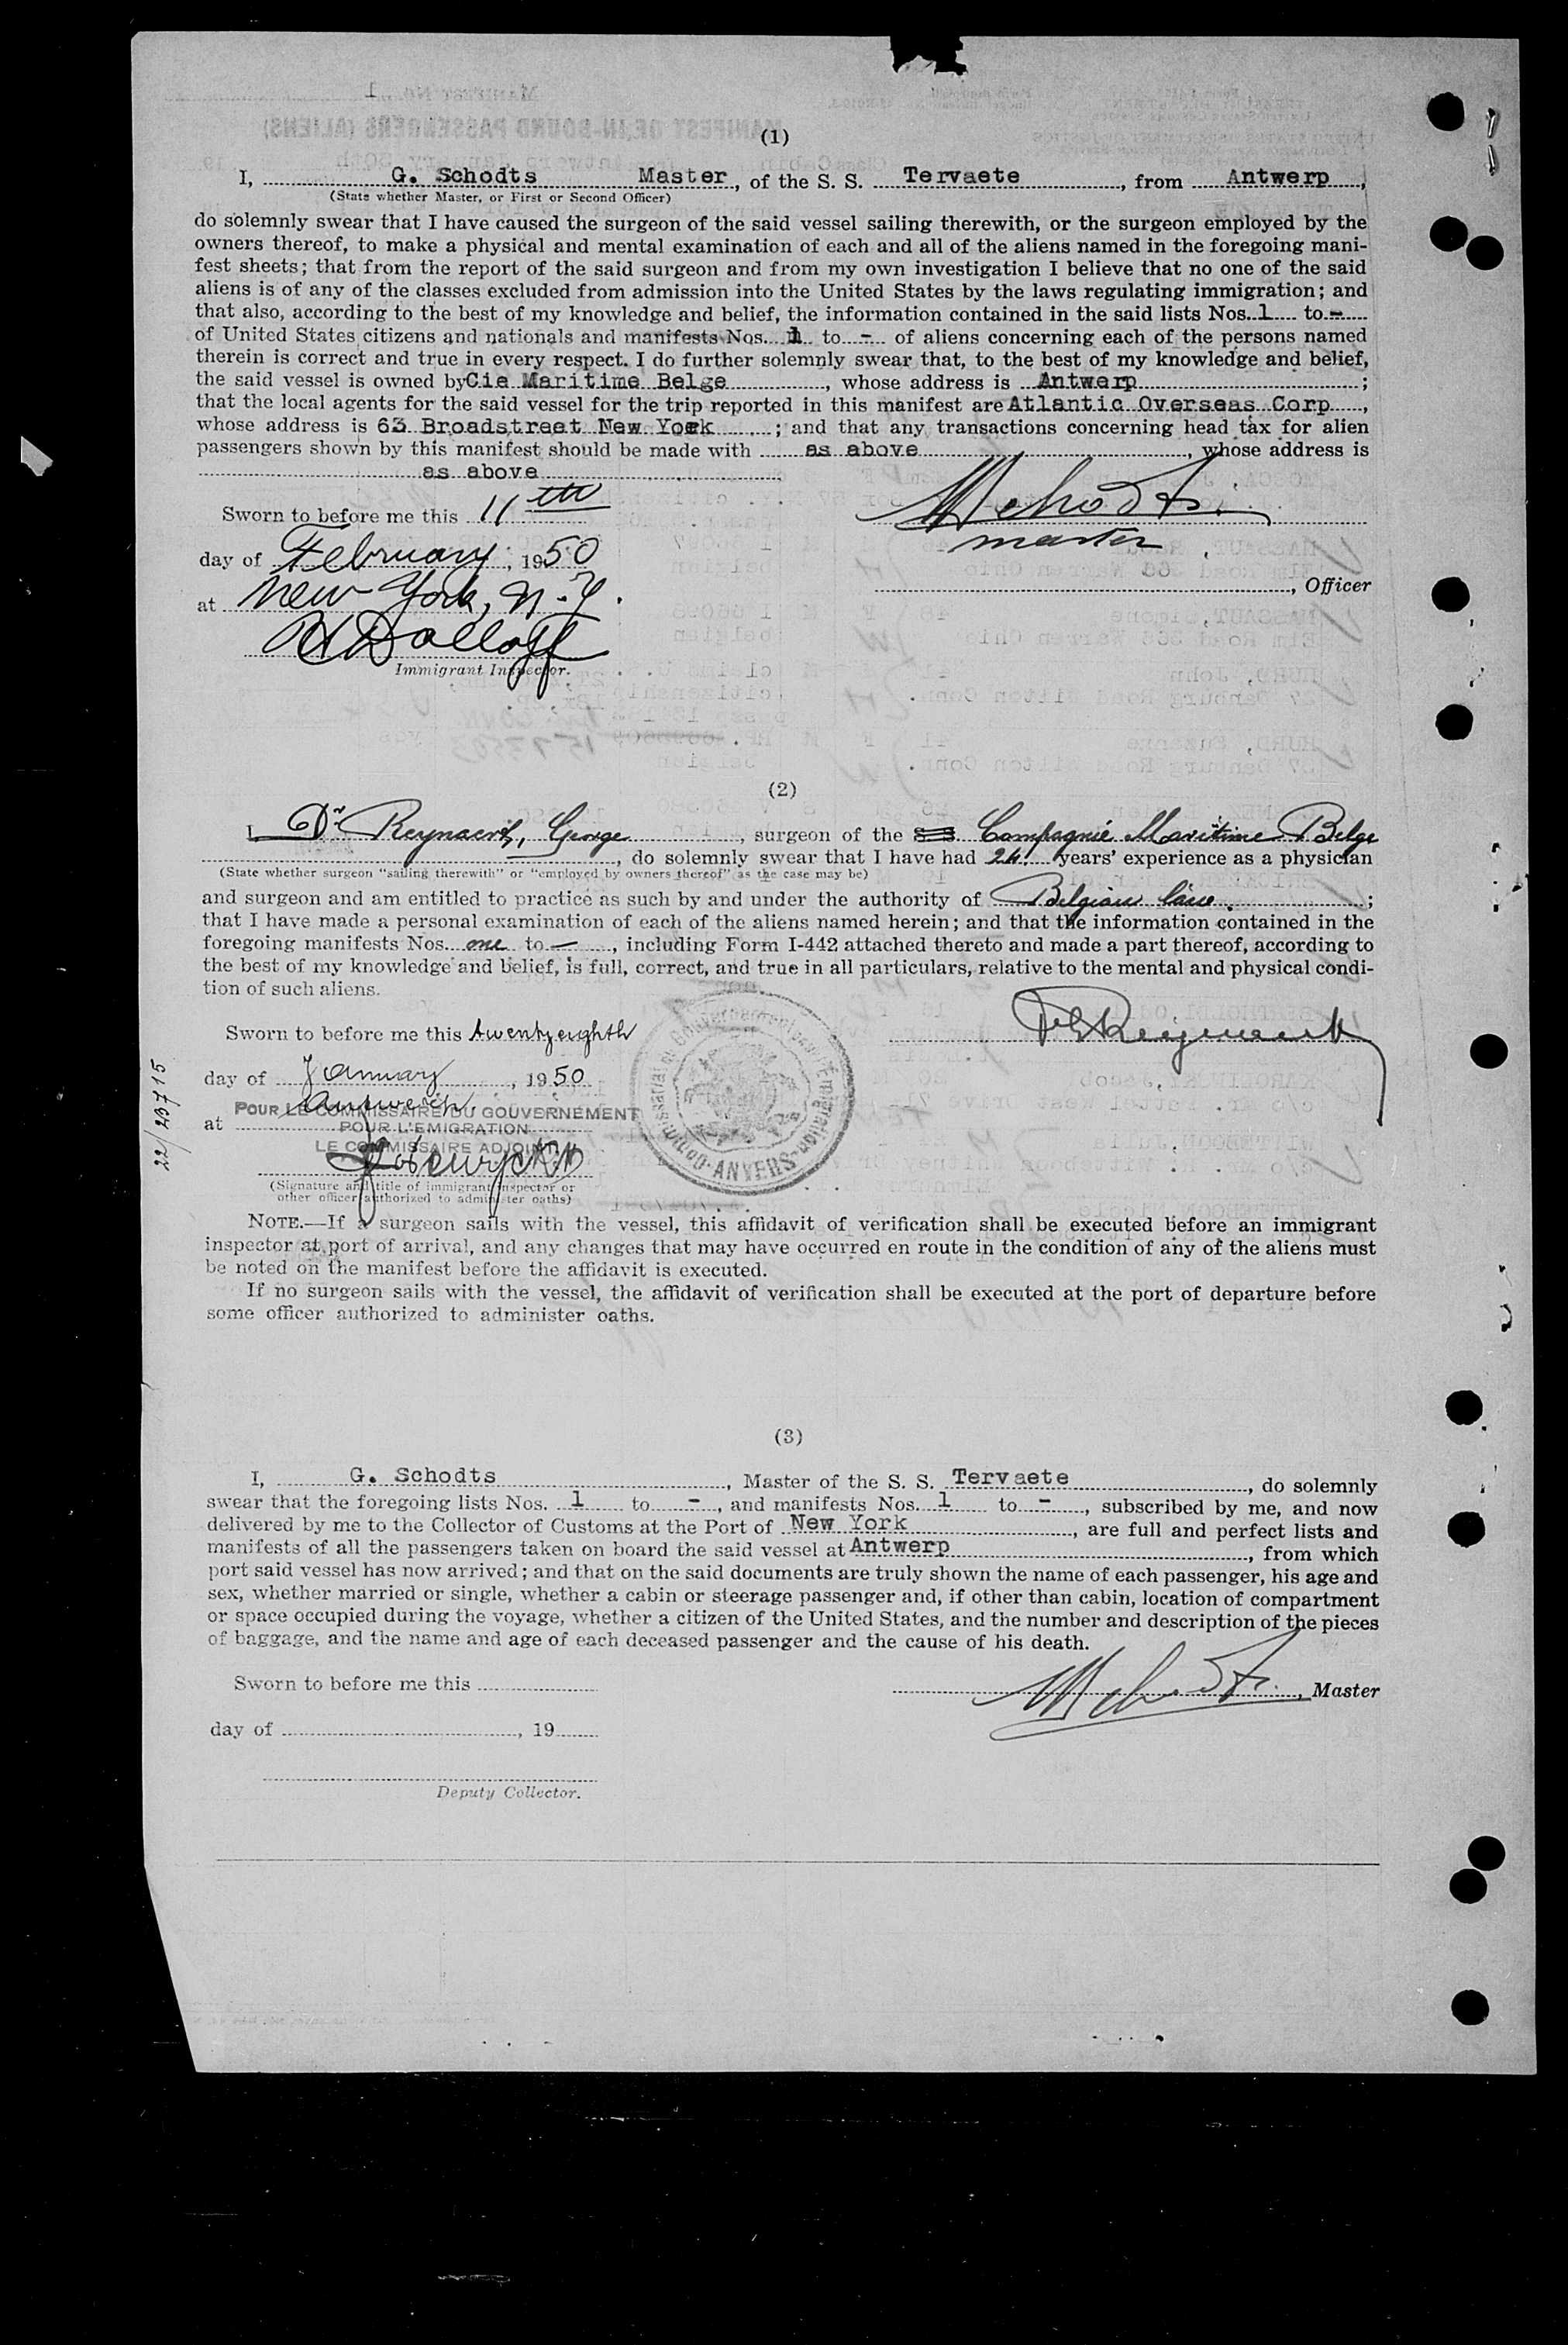 (1)
I, G. Schodts Master, of the S. S. Tervaete, from Antwerp,
(State whether Master, or First or Second Officer)
do solemnly swear that I have caused the surgeon of the said vessel sailing therewith, or the surgeon employed by the
owners thereof, to make a physical and mental examination of each and all of the aliens named in the foregoing mani-
fest sheets; that from the report of the said surgeon and from my own investigation I believe that no one of the said
aliens is of any of the classes excluded from admission into the United States by the laws regulating immigration; and
that also, according to the best of my knowledge and belief, the information contained in the said lists Nos. 1 to -
of United States citizens and nationals and manifests Nos. 1 to - of aliens concerning each of the persons named
therein is correct and true in every respect. I do further solemnly swear that, to the best of my knowledge and belief,
the said vessel is owned by Cie Maritime Belge, whose address is Antwerp;
that the local agents for the said vessel for the trip reported in this manifest are Atlantic Overseas Corp,
whose address is 63 Broadstreet New York; and that any transactions concerning head tax for alien
passengers shown by this manifest should be made with as above, whose address is
as above
Sworn to before me this 11th
day of February, 1950
at New York, N.Y.
Immigrant Inspector.
Schodts
master
, Officer
(2)
I, Dr Reynaert, George, surgeon of the S S Compagnie Maritime Belge
, do solemnly swear that I have had 24 years' experience as a physician
(State whether surgeon "sailing therewith" or "employed by owners thereof" as the case may be)
and surgeon and am entitled to practice as such by and under the authority of Belgian law;
that I have made a personal examination of each of the aliens named herein; and that the information contained in the
foregoing manifests Nos. one to —, including Form I-442 attached thereto and made a part thereof, according to
the best of my knowledge and belief, is full, correct, and true in all particulars, relative to the mental and physical condi-
tion of such aliens.
Sworn to before me this twenty eighth
day of January, 1950
at Antwerp
POUR LE COMMISSAIRE DU GOUVERNEMENT
POUR L'EMIGRATION
LE COMMISSAIRE ADJOINT
(Signature and title of immigrant inspector or
other officer authorized to administer oaths)
Reynaert
ANVERS
22/23715
NOTE.—If a surgeon sails with the vessel, this affidavit of verification shall be executed before an immigrant
inspector at port of arrival, and any changes that may have occurred en route in the condition of any of the aliens must
be noted on the manifest before the affidavit is executed.
If no surgeon sails with the vessel, the affidavit of verification shall be executed at the port of departure before
some officer authorized to administer oaths.
(3)
I, G. Schodts, Master of the S. S. Tervaete, do solemnly
swear that the foregoing lists Nos. 1 to -, and manifests Nos. 1 to -, subscribed by me, and now
delivered by me to the Collector of Customs at the Port of New York, are full and perfect lists and
manifests of all the passengers taken on board the said vessel at Antwerp, from which
port said vessel has now arrived; and that on the said documents are truly shown the name of each passenger, his age and
sex, whether married or single, whether a cabin or steerage passenger and, if other than cabin, location of compartment
or space occupied during the voyage, whether a citizen of the United States, and the number and description of the pieces
of baggage, and the name and age of each deceased passenger and the cause of his death.
Sworn to before me this
Schodts, Master
day of , 19
Deputy Collector.